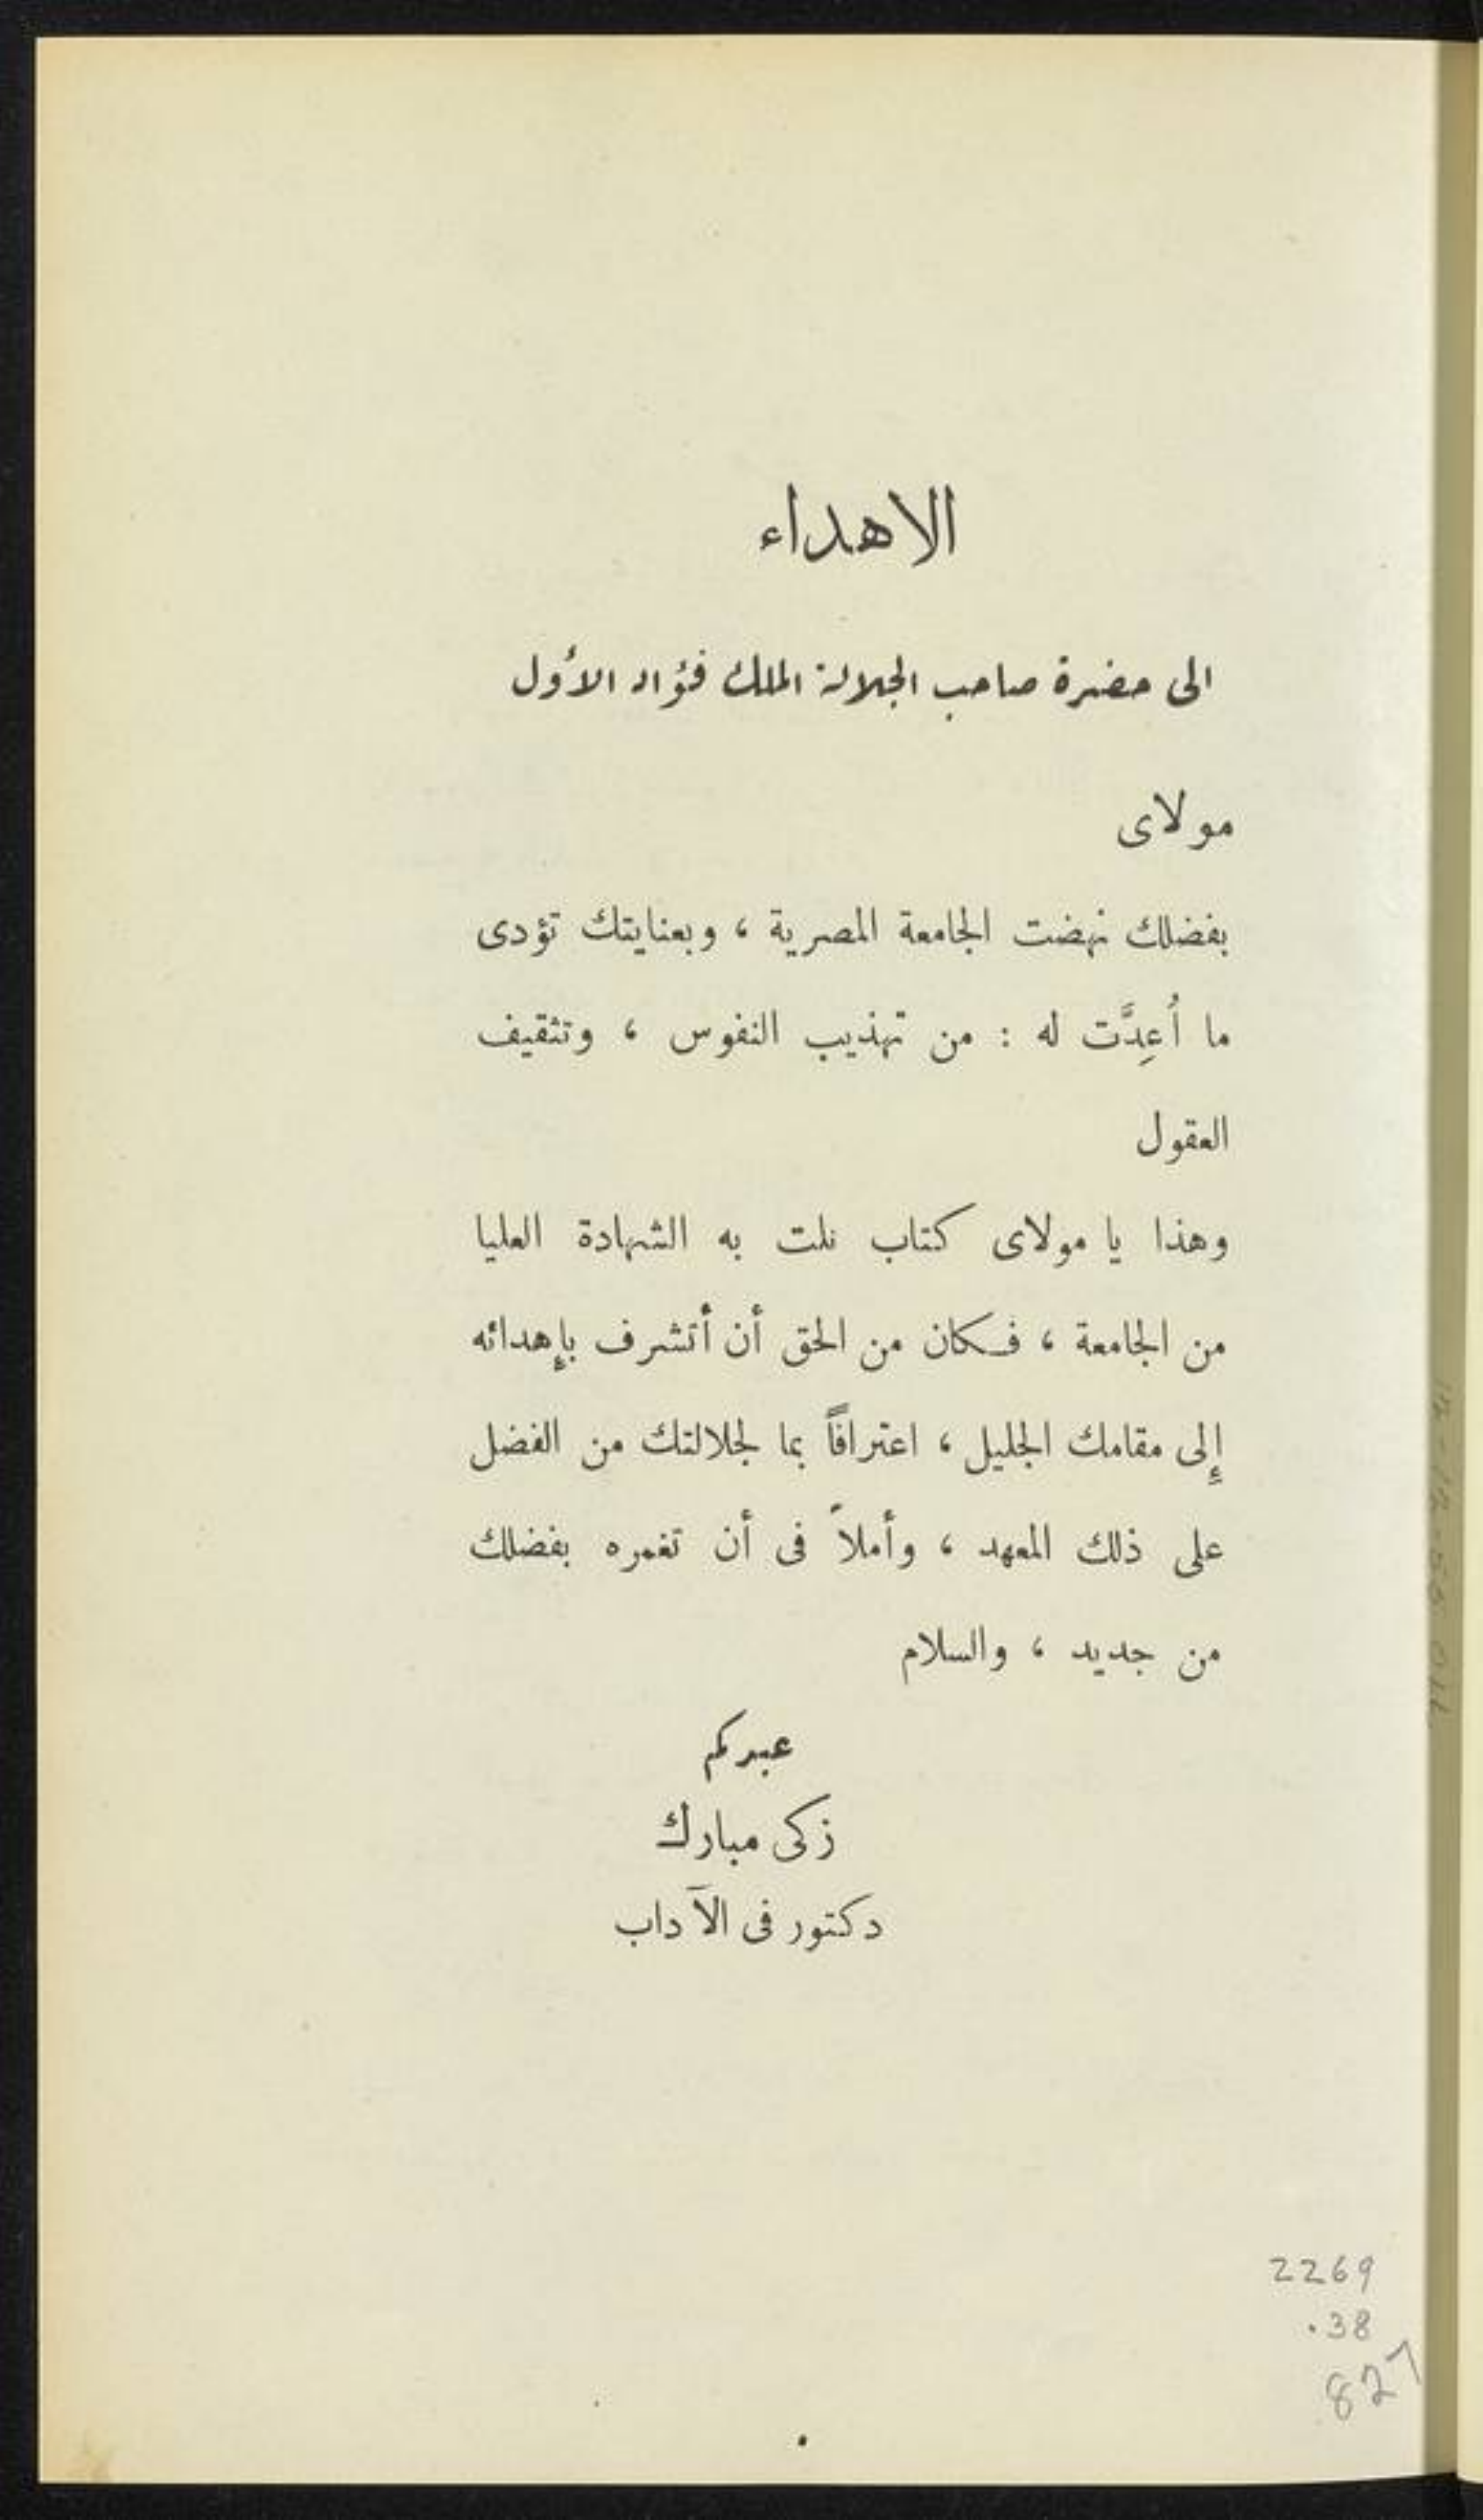 الاهداء
الى حضرة صاحب الجلالة الملك فؤاد الأول
مولاى
بفضلك نهضت الجامعة المصرية ، وبعنايتك تؤدى
ما أُعِدَّت له : من تهذيب النفوس ، وتثقيف
العقول
وهذا يا مولاى كتاب نلت به الشهادة العليا
من الجامعة ، فكان من الحق أن أتشرف بإهدائه
إلى مقامك الجليل ، اعترافاً بما لجلالتك من الفضل
على ذلك المعهد ، وأملاً فى أن تغمره بفضلك
من جديد ، والسلام
عبدكم
زكى مبارك
دكتور فى الآداب
2269
.38
827